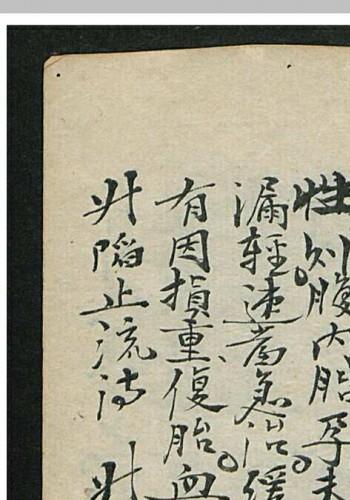 牲则腹内胎孕未
漏輕速當急治緩
有因損重復胎血
升陷止流